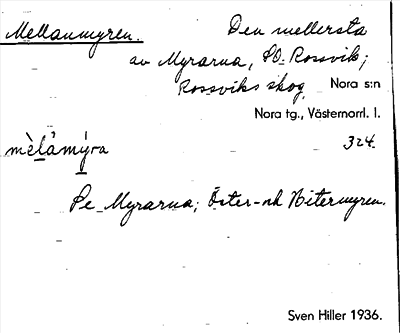 Mellanmyren. Den mellersta
av Myrarna, SO Rossvik;
Rossviks skog, Nora s:n
Nora tg., Västernorrl. l.
mèlåmýra 324.
Se Myrarna; Öster- och